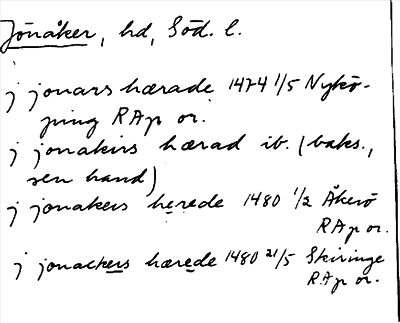 Jönåker, hd, Söd. l.
j jonars hærade 1474 1/5 Nykö-
ping RAp or.
j jonakirs hærad ib. (baks.,
sen hand)
j jonakers herede 1480 1/2 Åkerö
RAp or.
j jonackers hærede 1480 21/5 Skiringe
RAp or.